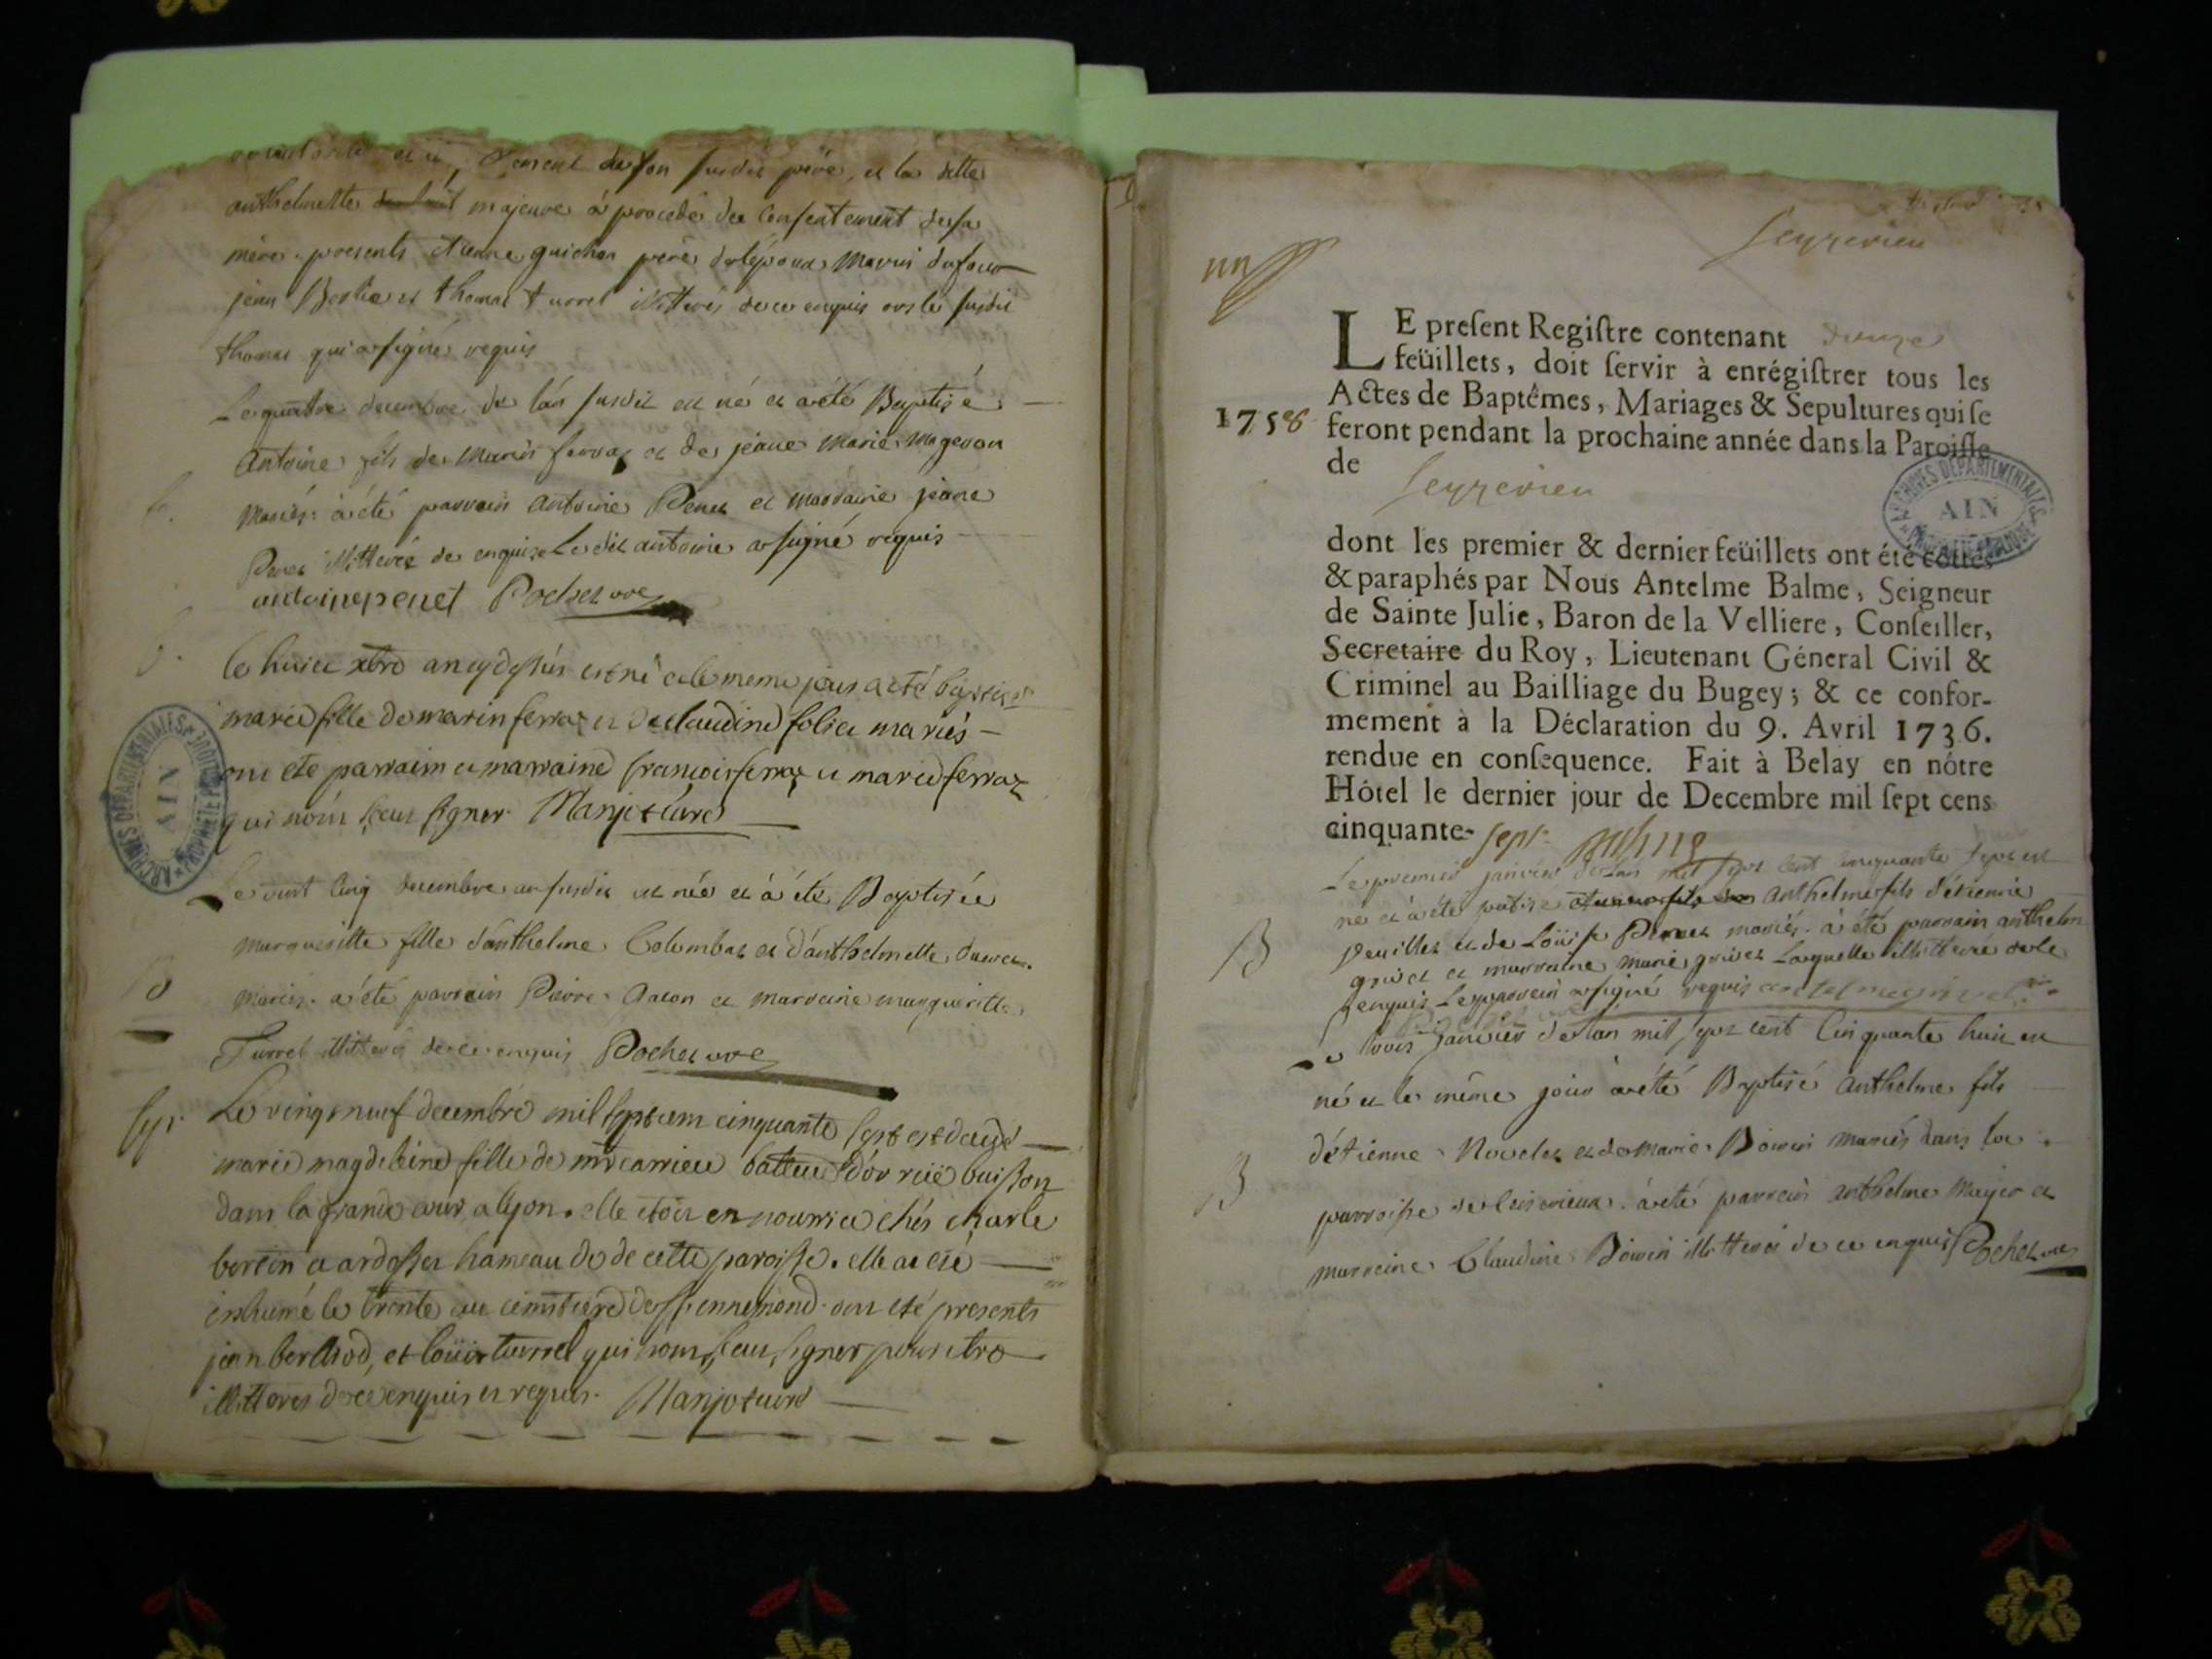 du son susdit père, et la ditte
anthelmette majeure a procedé du Consentement de sa
mère. presents étienne guichon père de lépoux Marin dufour
jean et thomas turrel illitterés de ce enquis ors le susdit
thomas qui a signé requis
Le quatre decembre de lán susdit est né et a été Baptisé
antoine fils de Marin ferraz et de jeane Marie Mageron
Mariés. à été parrain Antoine Penet et marraine jeane
Penet illitterée de enquise Le dit antoine a signé requis
antoine penet Pochet vre
le huict xbre an cy dessus est né et le meme jour a eté baptisée
marie fille de marin ferraz et de claudine foliet mariés
ont eté parraim et marraine francois ferraz et marie ferraz
qui n'ont sceu signer. Manjot curé
Le vint cinq decembre an susdit est née et à été Baptisée
Margueritte fille d'anthelme Colombat et d'anthelmette
Mariés. a été parrain Pierre et marraine margueritte
Turrel illitterés de ce enquis Pochet vre
B
Sep. Le vingt neuf decembre mil sept cent cinquante sept est decedé
marie magdeleine fille de mr carrieu batteur d'or ruë buisson
dans la grande cour a lyon. elle etoit en nourrice chés charle
bertin a ardosset hameau de de cette paroisse. elle a eté
inhumé le trente au cimetiere de st ennemond. ont eté presents
jean berthod, et loüis turrel qui n'ont sceu signer pour etre
illitterés de ce enquis et requis. Manjot curé
ARCHIVES DEPARTEMENTALES
AIN
PROPRIETE PUBLIQUE
Seyzerieu
un
LE present Registre contenant douze
feüillets, doit servir à enrégistrer tous les
Actes de Baptêmes, Mariages & Sepultures qui se
1758 feront pendant la prochaine année dans la Paroisse
de
Seyzerieu
ARCHIVES DEPARTEMENTALES
AIN
dont les premier & dernier feüillets ont été cottés
& paraphés par Nous Antelme Balme, Seigneur
de Sainte Julie, Baron de la Velliere, Conseiller,
Secretaire du Roy, Lieutenant Géneral Civil &
Criminel au Bailliage du Bugey; & ce confor-
mement à la Déclaration du 9. Avril 1736.
rendue en consequence. Fait à Belay en nôtre
Hôtel le dernier jour de Decembre mil sept cens
cinquante-sept
Le premier janvier de lan mil sept cent cinquante sept est
né et à été anthelme fils d'étienne
et de Loüise Penet mariés. à été parrain anthelme
B
grivet et marraine Marie grivet Laquelle illitterée de le
enquis Le parrein a signé requis antelme grivet
Le trois Janvier de lan mil sept cent Cinquante huit est
né et le même jour a été Baptisé Anthelme fils
d'étienne et de Marie Boivin Mariés dans la
B
parroisse de a été parrein anthelme et
marreine Claudine Boivin illitterés de ce enquis Pochet vre